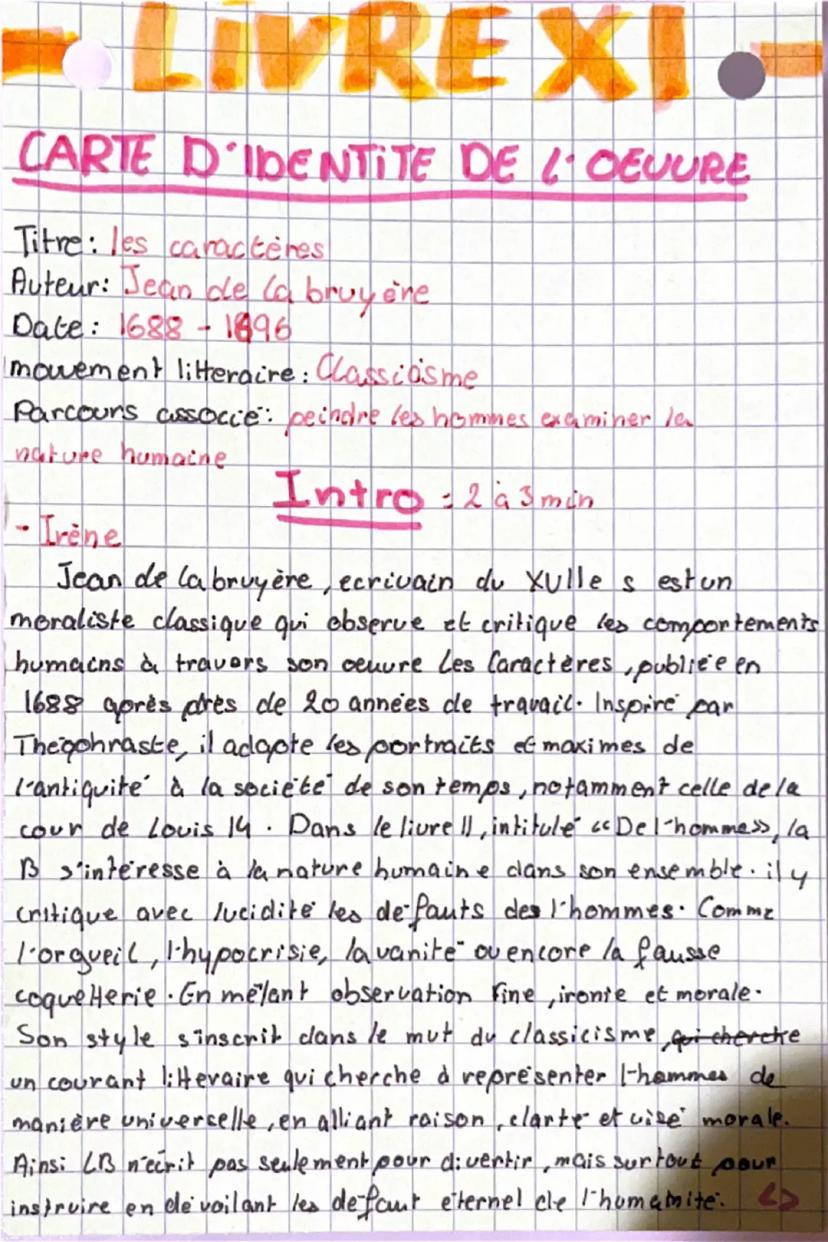 - LIVRE XI -
CARTE D'IDENTITE DE L'OEUVRE
Titre: les caractères
Auteur: Jean de la bruyère
Date: 1688 - 1696
mouvement litteraire: Classicisme
Parcours associé: peindre les hommes examiner la
nature humaine
Intro = 2 à 3 min
- Irène
Jean de la bruyère, ecrivain du XVIIe s est un
moraliste classique qui observe et critique les comportements
humains à travers son oeuvre Les Caractères, publiée en
1688 après près de 20 années de travail. Inspiré par
Théophraste, il adapte les portraits et maximes de
l'antiquité à la société de son temps, notamment celle de la
cour de Louis 14. Dans le livre 11, intitulé «De l'homme», la
B s'intéresse à la nature humaine dans son ensemble. il y
critique avec lucidité les défauts des l'hommes. Comme
l'orgueil, l'hypocrisie, la vanité ou encore la fausse
coquetterie. En mêlant observation fine, ironie et morale.
Son style s'inscrit dans le mvt du classicisme, qui cherche
un courant littéraire qui cherche à représenter l'hommes de
manière universelle, en alliant raison, clarté et visé morale.
Ainsi LB n'écrit pas seulement pour divertir, mais surtout pour
instruire en dévoilant les défaut éternel de l'humanité.